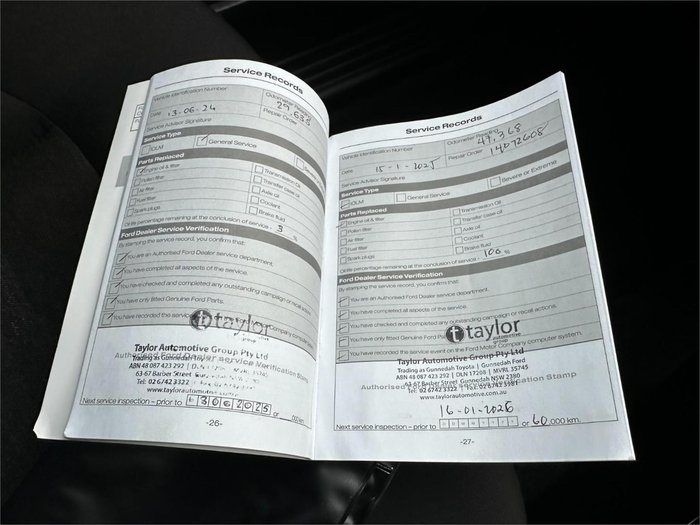 Service Records
Vehicle Identification Number
Odometer Reading
29,635
Date 13-06-24
Repair Order
Service Advisor Signature
Service Type
IOLM
General Service
Parts Replaced
Engine oil & filter
Transmission Oil
Pollen filter
Transfer case oil
Air filter
Axle oil
Fuel filter
Coolant
Spark plugs
Brake fluid
Oil life percentage remaining at the conclusion of service - 3 %
Ford Dealer Service Verification
By stamping the service record, you confirm that:
You are an Authorised Ford Dealer service department.
You have completed all aspects of the service.
You have checked and completed any outstanding campaign or recall actions.
You have only fitted Genuine Ford Parts.
You have recorded the service
Company computer system.
taylor
Taylor Automotive Group Pty Ltd
Authorised Ford Dealer service Verification Stamp
Trading as Gunnedah Toyota
ABN 48 087 423 292
63-67 Barber Street Gunnedah NSW 2380
Tel: 02 6742 3322
www.taylorautomotive.com.au
Next service inspection – prior to 13062025 or ,000 km.
-26-
Service Records
Vehicle Identification Number
Odometer Reading
47,368
Date 15-1-2025
Repair Order 14072608
Service Advisor Signature
Service Type
IOLM
General Service
Severe or Extreme
Parts Replaced
Engine oil & filter
Transmission Oil
Pollen filter
Transfer case oil
Air filter
Axle oil
Fuel filter
Coolant
Spark plugs
Brake fluid
Oil life percentage remaining at the conclusion of service - 100 %
Ford Dealer Service Verification
By stamping the service record, you confirm that:
You are an Authorised Ford Dealer service department.
You have completed all aspects of the service.
You have checked and completed any outstanding campaign or recall actions.
You have only fitted Genuine Ford Parts.
You have recorded the service event on the Ford Motor Company computer system.
taylor
automotive
Taylor Automotive Group Pty Ltd
Trading as Gunnedah Toyota | Gunnedah Ford
ABN 48 087 423 292 | DLN 17208 | MVRL 35745
Authorised
63-67 Barber Street Gunnedah NSW 2380
Verification Stamp
Tel: 02 6742 3322 | Fax: 02 6742 5981
www.taylorautomotive.com.au
16-01-2026
Next service inspection – prior to or 60,000 km.
-27-